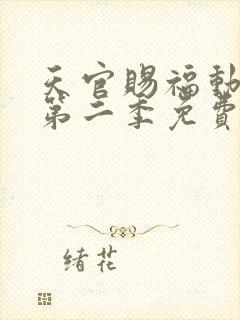 天官賜福動
第二季免費
緒花